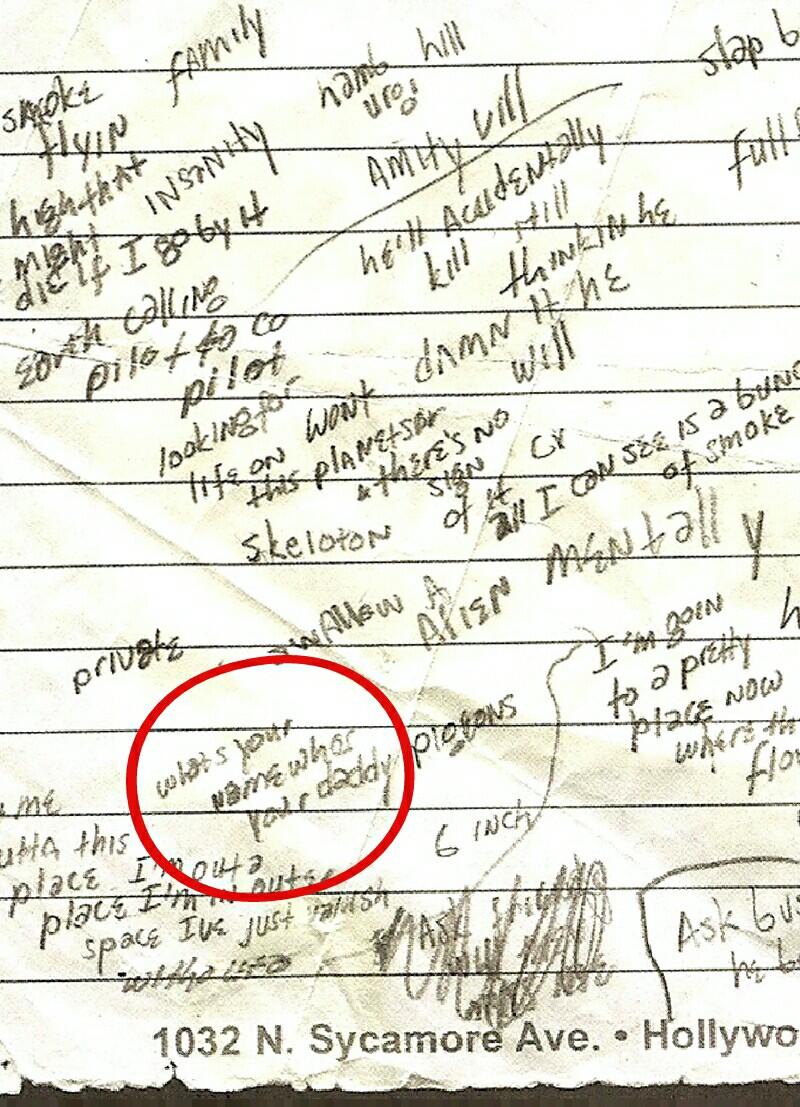 smoke
flyin
high that
might
die if I go by it
family
insanity
hamb hill
Amity vill
he'll accidentally
kill still
thinkin he
damn it he
will
slap b
full
earth calling
pilot to co
pilot
looking for
life on wont
this planet sar
there's no
sign
of it cr
all I can see is a bunc
of smoke
skeloton
swallow a
Alien
mentally
private
I'm goin
to a pretty
place now
where th
flo
whats your
name whos
your daddy
pigeons
6 inch
me
utta this
place I'm outa
place I'm in outer
space Ive just vanish
Ask
Ask bu
he b
1032 N. Sycamore Ave. • Hollywo